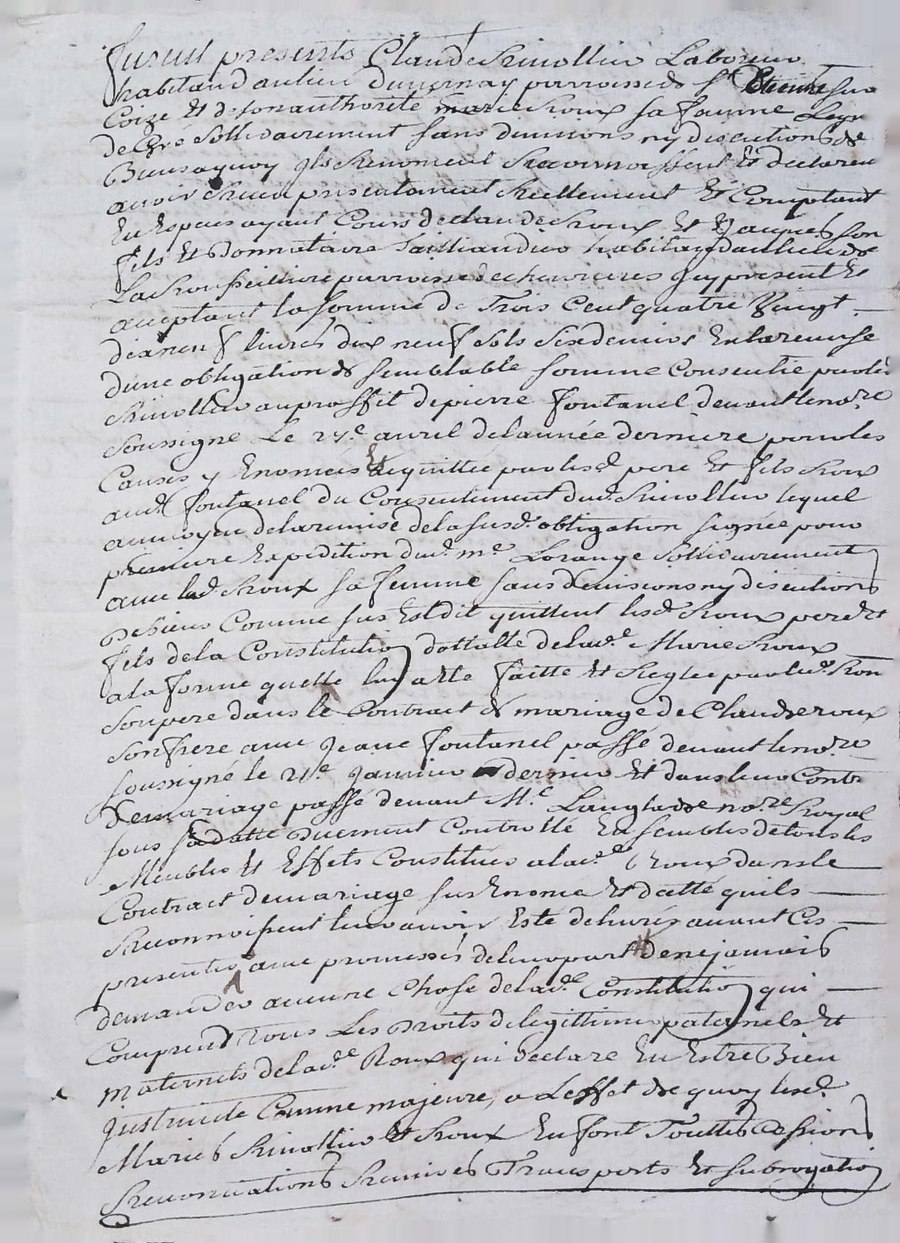 furent presents Claude Rivollier Laboureur
habitand au lieu du vernay parroisse de St Etienne sur
Coize Et de son authorité marie Roux sa femme Leqls
de Gré Sollidairement sans divisions ny discutions de
Biens a quoy ils Renoncent Reconnoissent Et declarent
avoir Receu presentement Reellement Et Comptant
En Especes ayant Cours de claude Roux Et Jacques son
fils Et donnataire habitans au lieu de
La parroisse de chevrieres icy present Et
aceptant la somme de Trois Cent quatre Vingt
dix neuf livres dix neuf sols Six deniers En la remise
dune obligation de semblable somme Consentie par led
Rivollier au proffit de pierre fontanel devant le nore
soussigné Le 27e avril de lannée derniere pour les
Causes y Enomées Et aquittée par lesd pere Et fils Roux
aud fontanel du Consentement dud Rivollier lequel
au moyen de la remise de la susd obligation signée pour
premiere Expedition dud me Lorange Sollidairement
avec lad Roux sa femme sans divisions ny discutions
de biens Comme sus Est dit quittent lesd Roux pere Et
fils de la Constitution dottalle de lade Marie Roux
a la forme quelle luy a Eté faitte Et Reglée par led Roux
son pere dans le Contract de mariage de Claude roux
son frere avec Jeane fontanel passé devant le nore
soussigné le 21e Janvier dernier Et dans leur Contt
de mariage passé devant Me Langlade nore Royal
sous sa datte duement Controllé Ensembles de tous les
Meubles Et Effets Constitués a lade Roux dans le
Contract de mariage sus Enomé Et datté quils
Reconnoissent leur avoir Esté delivrés avant Ces
presentes avec promesses de leur part de ne jamais
demander aucune Chose de lade Constitution qui
Comprend Tous Les Droits de legittime paternels Et
maternels de lade Roux qui declare En Estre Bien
justruite Comme majeure, a Leffet de quoy lesd
Mariés Rivollier Et Roux En font Touttes Cessions
Renonciations Remises Transports Et subrogation